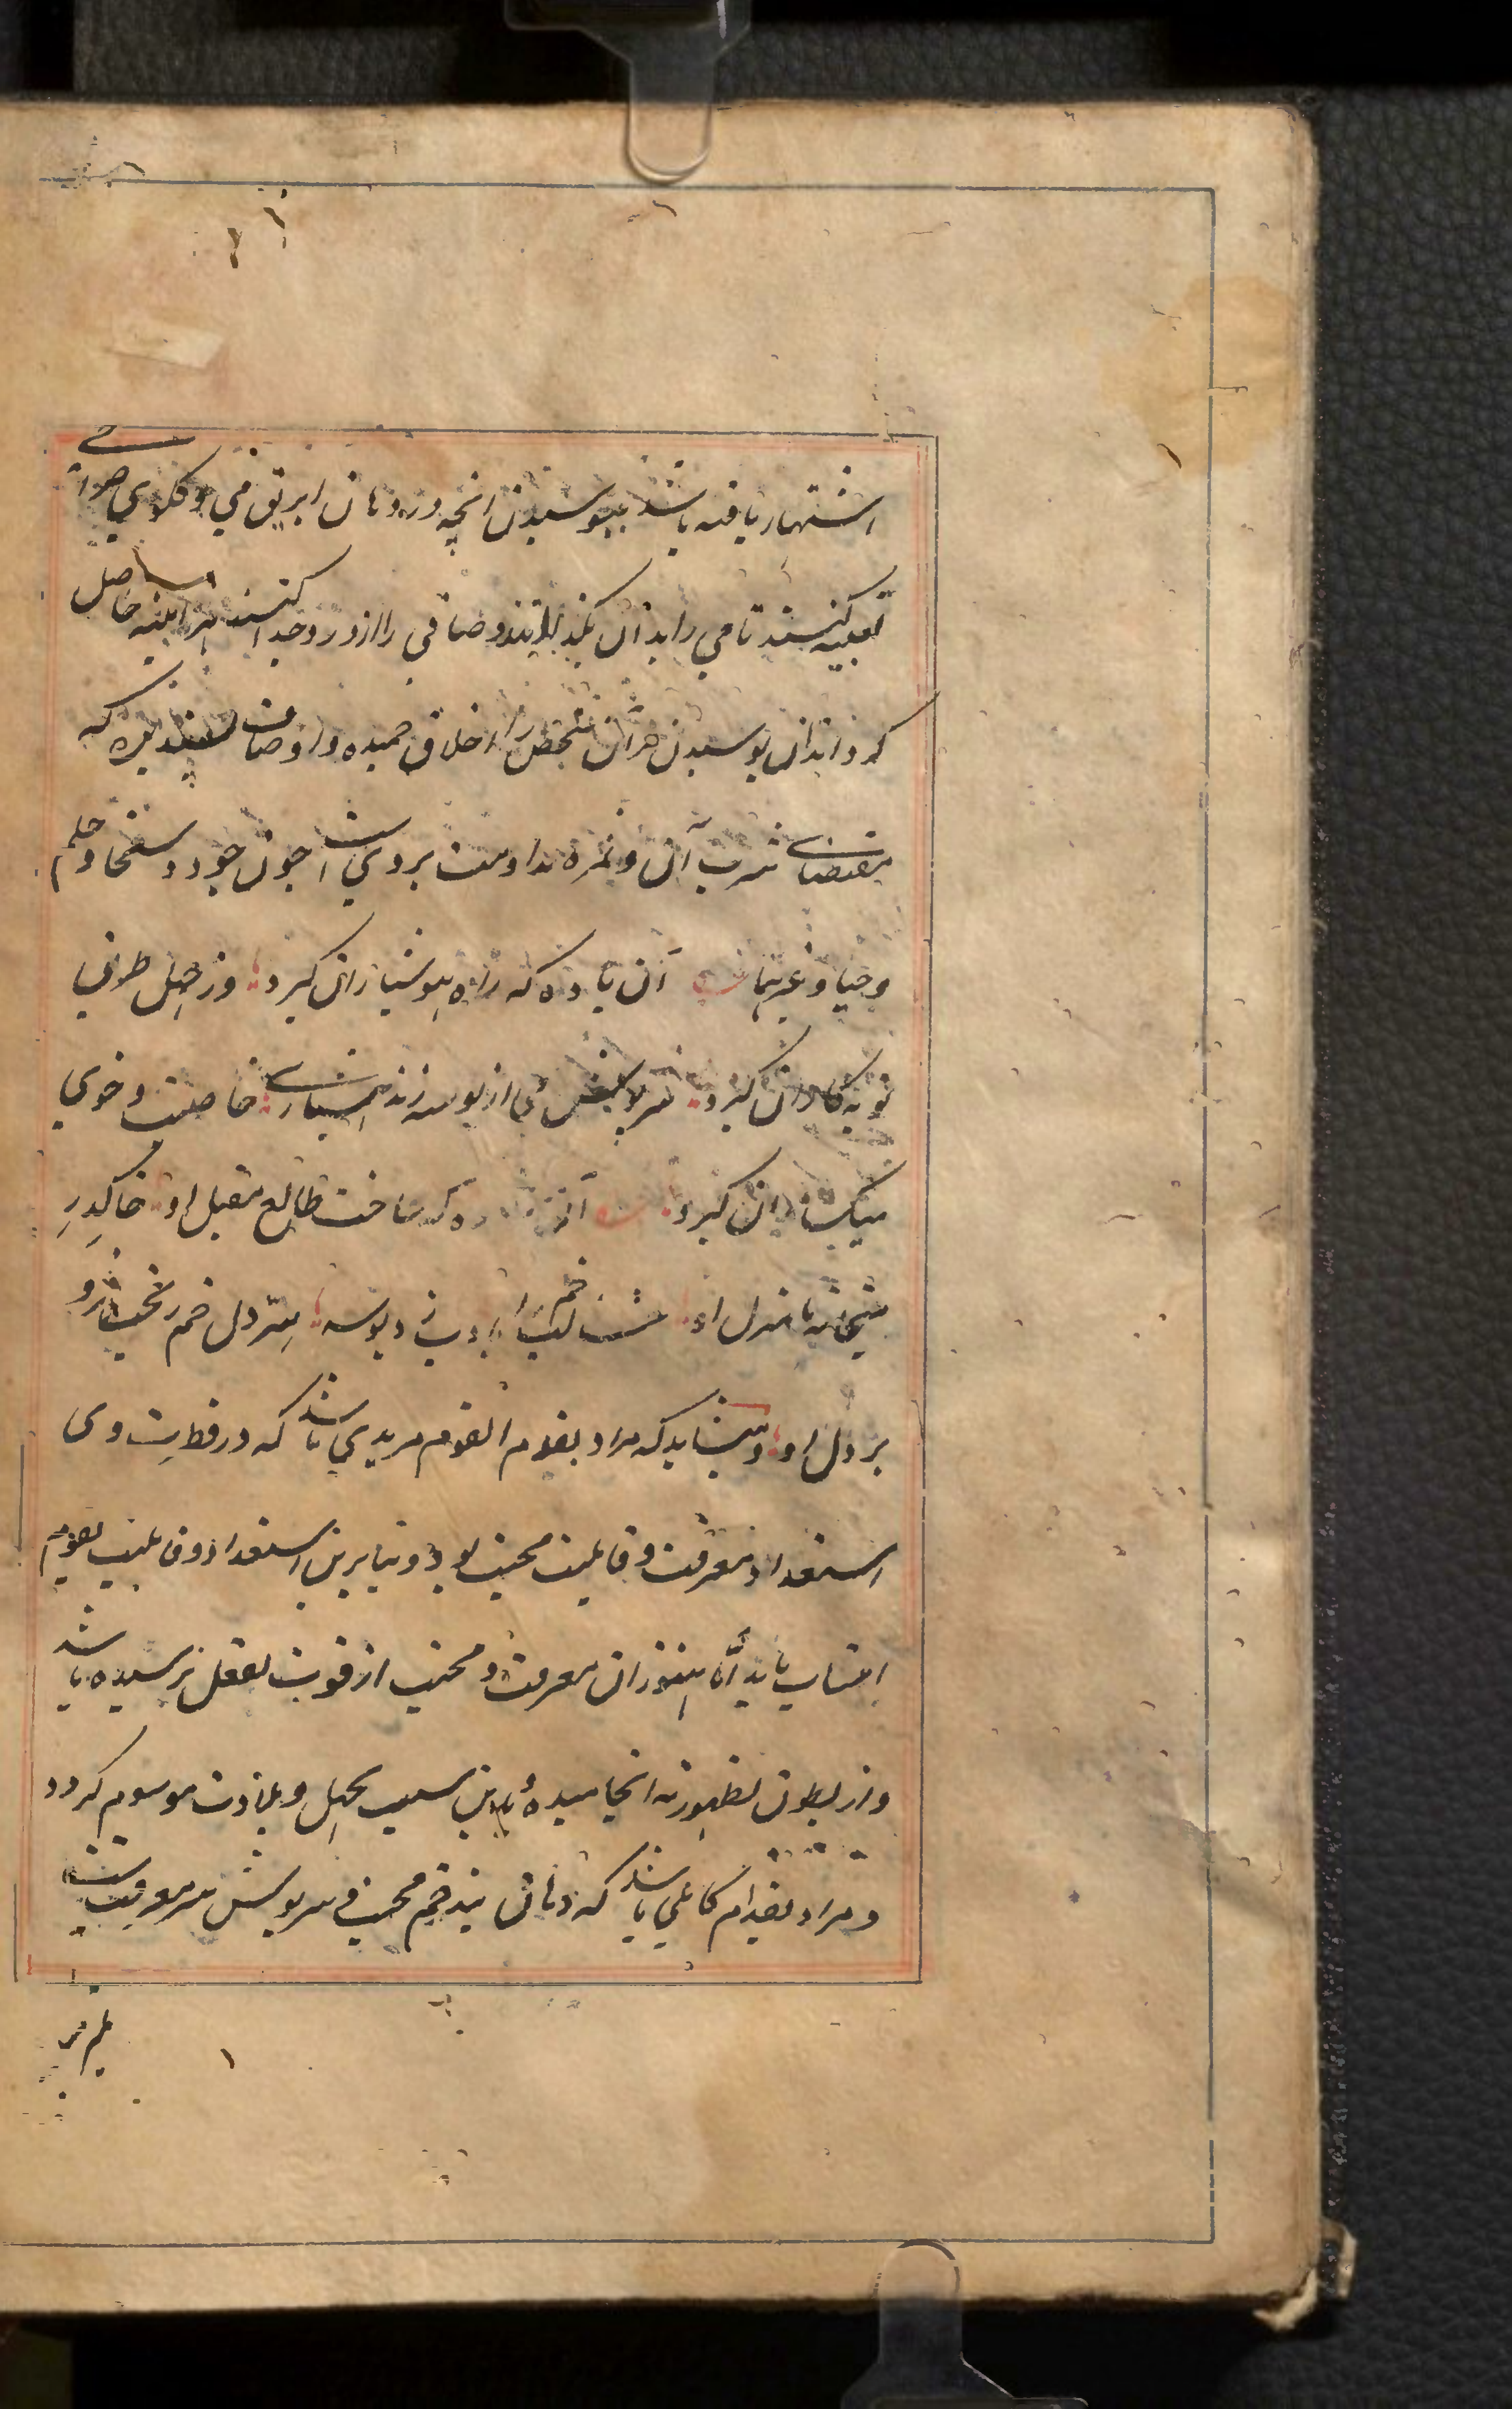 اشتهار یافته باشد ببوسیدن انچه در دهان ابریق می و کلوی صراحی
تعبیه کنند تا می را بدان بگذرانند و صافی را از درد جدا کنند هر اینه حاصل
کرداند ان بوسیدن مر آن شخص را اخلاق حمیده و اوصاف پسندیده که
مقتضای شرب آن و ثمره مداومت بر وی است چون جود و سخا و حلم
و حیا و غیرهما آن باده که راه هوشیاران کیرد وز جهل طریق
توبه کاران کیرد بر لب می از بوسه زند هشیاری خاصیت و خوی
میکساران کیرد آن که ساخت طالع مقبل او خاک در
میخانه را منزل او لب خم را ادب زد بوسه سر دل خم ریخت
بر دل او و میشاید که مراد بفدم القوم مریدی باشد که در فطرت وی
استعداد معرفت و قابلیت محبت بود و بنا برین استعداد و قابلیت بقوم
انتساب یابد اما هنوز ان معرفت و محبت از قوت بفعل نرسیده باشد
و از بطون بظهور نه انجامیده و بدین سبب بجهل و بلادت موسوم کردد
و مراد بفدام کاملی باشد که دهان بند خم محبت و سرپوش سر معرفتست